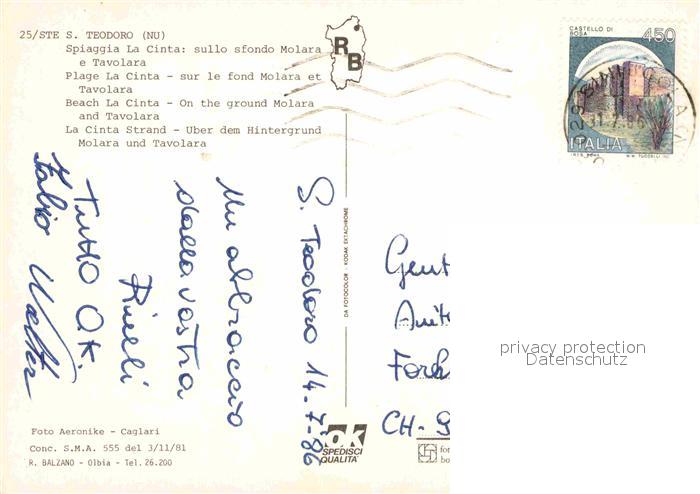 25/STE S. TEODORO (NU)
Spiaggia La Cinta: sullo sfondo Molara
e Tavolara
Plage La Cinta - sur le fond Molara et
Tavolara
Beach La Cinta - On the ground Molara
and Tavolara
La Cinta Strand - Uber dem Hintergrund
Molara und Tavolara
RB
CASTELLO DI
BOSA
450
ITALIA
S. Teodoro 14.7.86
Un abbraccio
dalla vostra
Tutto OK.
Fabio Walter
DA FOTOCOLOR - KODAK EKTACHROME
Gent
Anit
CH-9
privacy protection
Datenschutz
Foto Aeronike - Cagliari
Conc. S.M.A. 555 del 3/11/81
R. BALZANO - Olbia - Tel. 26.200
ok
SPEDISCI
QUALITÀ